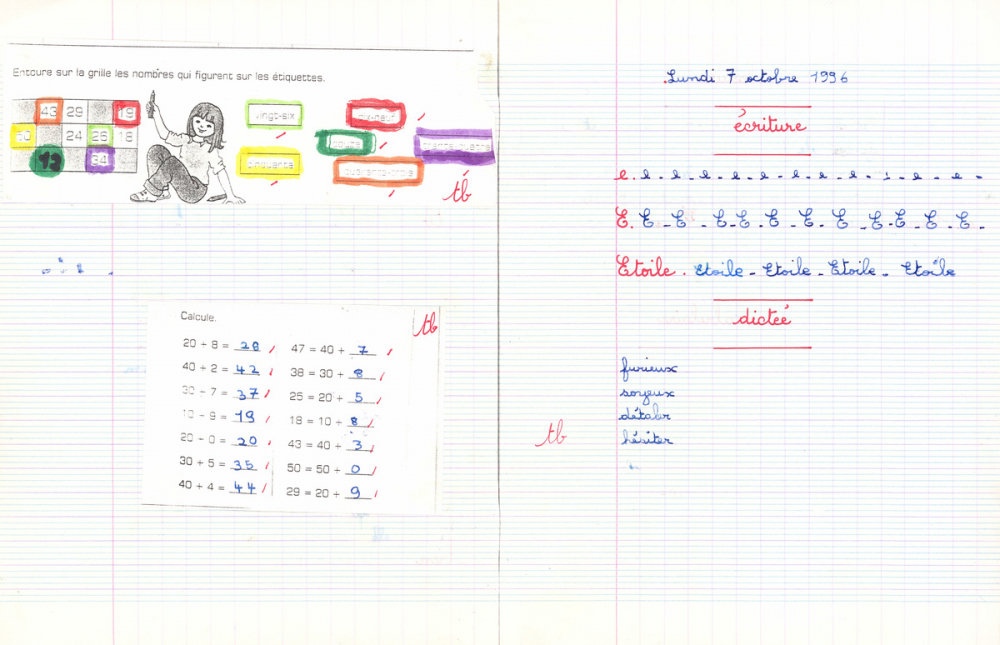 Entoure sur la grille les nombres qui figurent sur les étiquettes.
43 29 19
50 24 26 18
34
vingt-six
dix-neuf
cinquante
tb
Calcule.
tb
20 + 8 = 28
40 + 2 = 42
30 + 7 = 37
10 + 9 = 19
20 + 0 = 20
30 + 5 = 35
40 + 4 = 44
47 = 40 + 7
38 = 30 + 8
25 = 20 + 5
18 = 10 + 8
43 = 40 + 3
50 = 50 + 0
29 = 20 + 9
Lundi 7 octobre 1996
écriture
e. e. e. e. e. e. e. e. e. e. e. e. e.
E. E - E - E - E - E - E - E - E - E - E - E -
Etoile. Etoile - Etoile - Etoile - Etoile
dictée
furieux
soyeux
détaler
tb
hériter